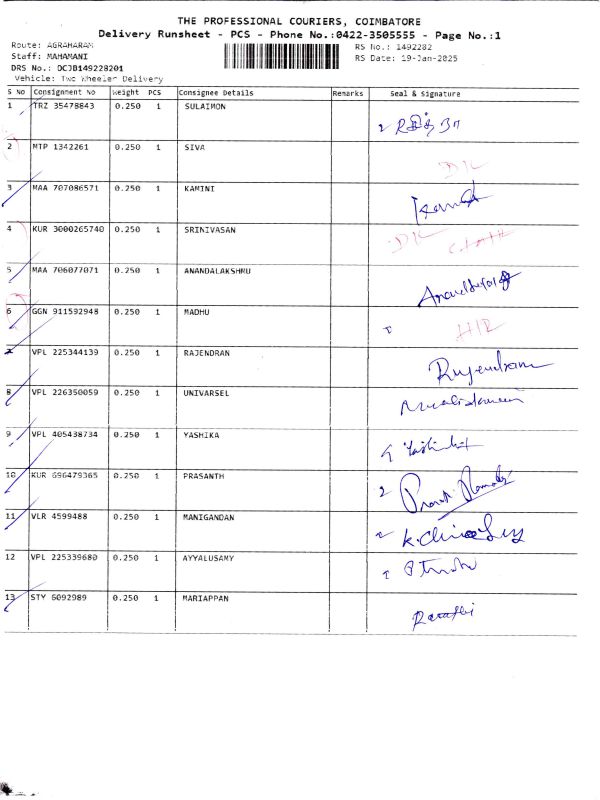 THE PROFESSIONAL COURIERS, COIMBATORE
Delivery Runsheet - PCS - Phone No.:0422-3505555 - Page No.:1
Route: AGRAHARAM
RS No.: 1492282
Staff: MAHAMANI
RS Date: 19-Jan-2025
DRS No.: DCJB149228201
Vehicle: Two Wheeler Delivery
S No Consignment No Weight PCS Consignee Details Remarks Seal & Signature
1 TRZ 35478843 0.250 1 SULAIMON
2 MTP 1342261 0.250 1 SIVA DL
3 MAA 707086571 0.250 1 KAMINI
4 KUR 3000265740 0.250 1 SRINIVASAN DL
5 MAA 706077071 0.250 1 ANANDALAKSHMU
6 GGN 911592948 0.250 1 MADHU HIR
7 VPL 225344139 0.250 1 RAJENDRAN Rajendran
8 VPL 226350059 0.250 1 UNIVARSEL
9 VPL 405438734 0.250 1 YASHIKA
10 KUR 696479365 0.250 1 PRASANTH
11 VLR 4599488 0.250 1 MANIGANDAN
12 VPL 225339680 0.250 1 AYYALUSAMY
13 STY 6092989 0.250 1 MARIAPPAN